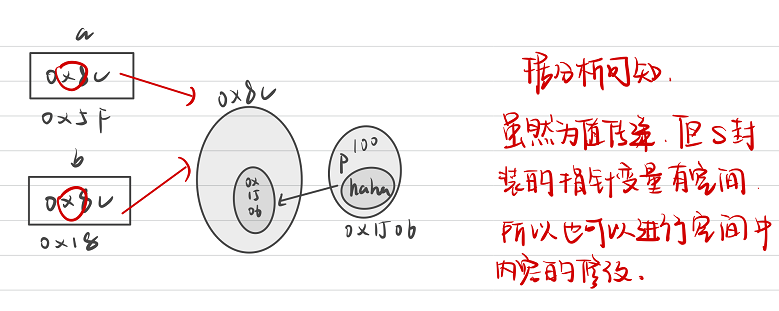 a
0x8c
0x5F
b
0x8c
0x18
0x8c
0x
1J
0b
P 100
haha
0x1J0b
据分析可知.
虽然为值传递.但S封
装的指针变量有空间.
所以也可以进行空间中
内容的修改.